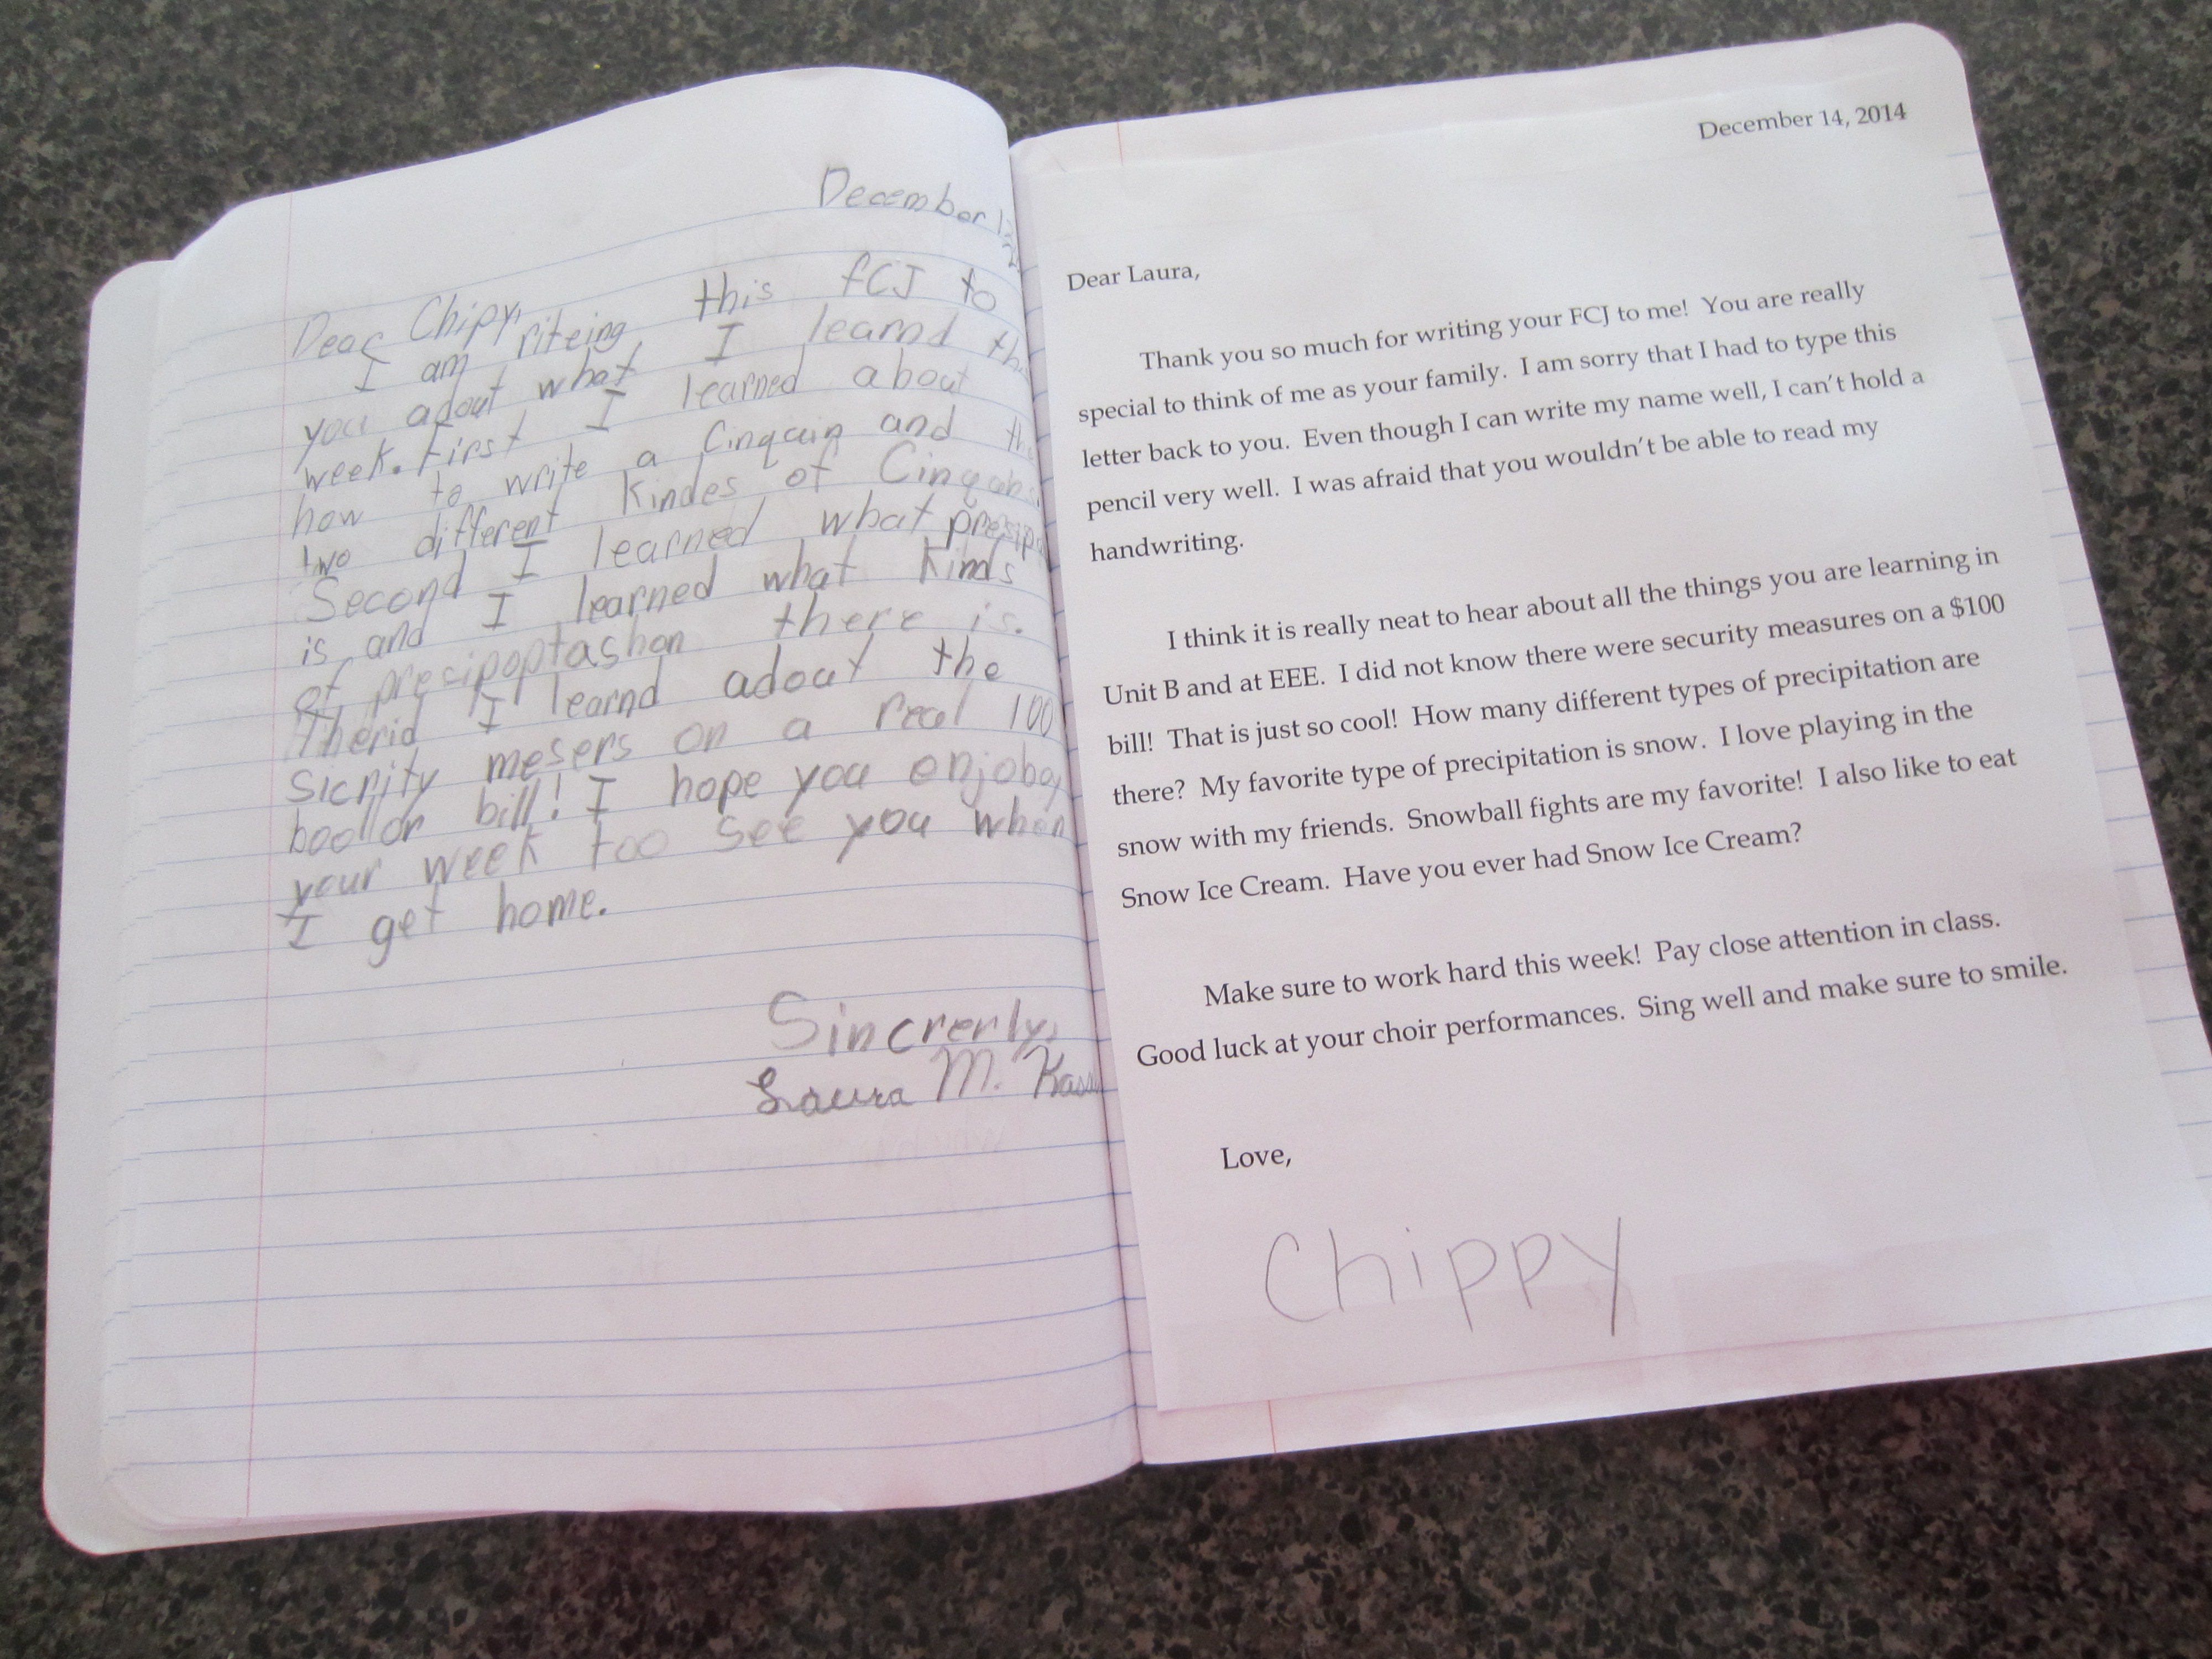 December
Dear Chipy,
I am riteing this fCJ to
you adout what I learnd
week. First I learned about
how to write a Cinquin and
two different Kindes of
Second I learned what
is and I learned what Kinds
of presipoptashon there is.
Therid I learnd adout the
Sicrity mesers on a real 100
boollor bill! I hope you
your week too See you when
I get home.
Sincrerly,
Laura M.
December 14, 2014
Dear Laura,
Thank you so much for writing your FCJ to me! You are really
special to think of me as your family. I am sorry that I had to type this
letter back to you. Even though I can write my name well, I can't hold a
pencil very well. I was afraid that you wouldn't be able to read my
handwriting.
I think it is really neat to hear about all the things you are learning in
Unit B and at EEE. I did not know there were security measures on a $100
bill! That is just so cool! How many different types of precipitation are
there? My favorite type of precipitation is snow. I love playing in the
snow with my friends. Snowball fights are my favorite! I also like to eat
Snow Ice Cream. Have you ever had Snow Ice Cream?
Make sure to work hard this week! Pay close attention in class.
Good luck at your choir performances. Sing well and make sure to smile.
Love,
Chippy